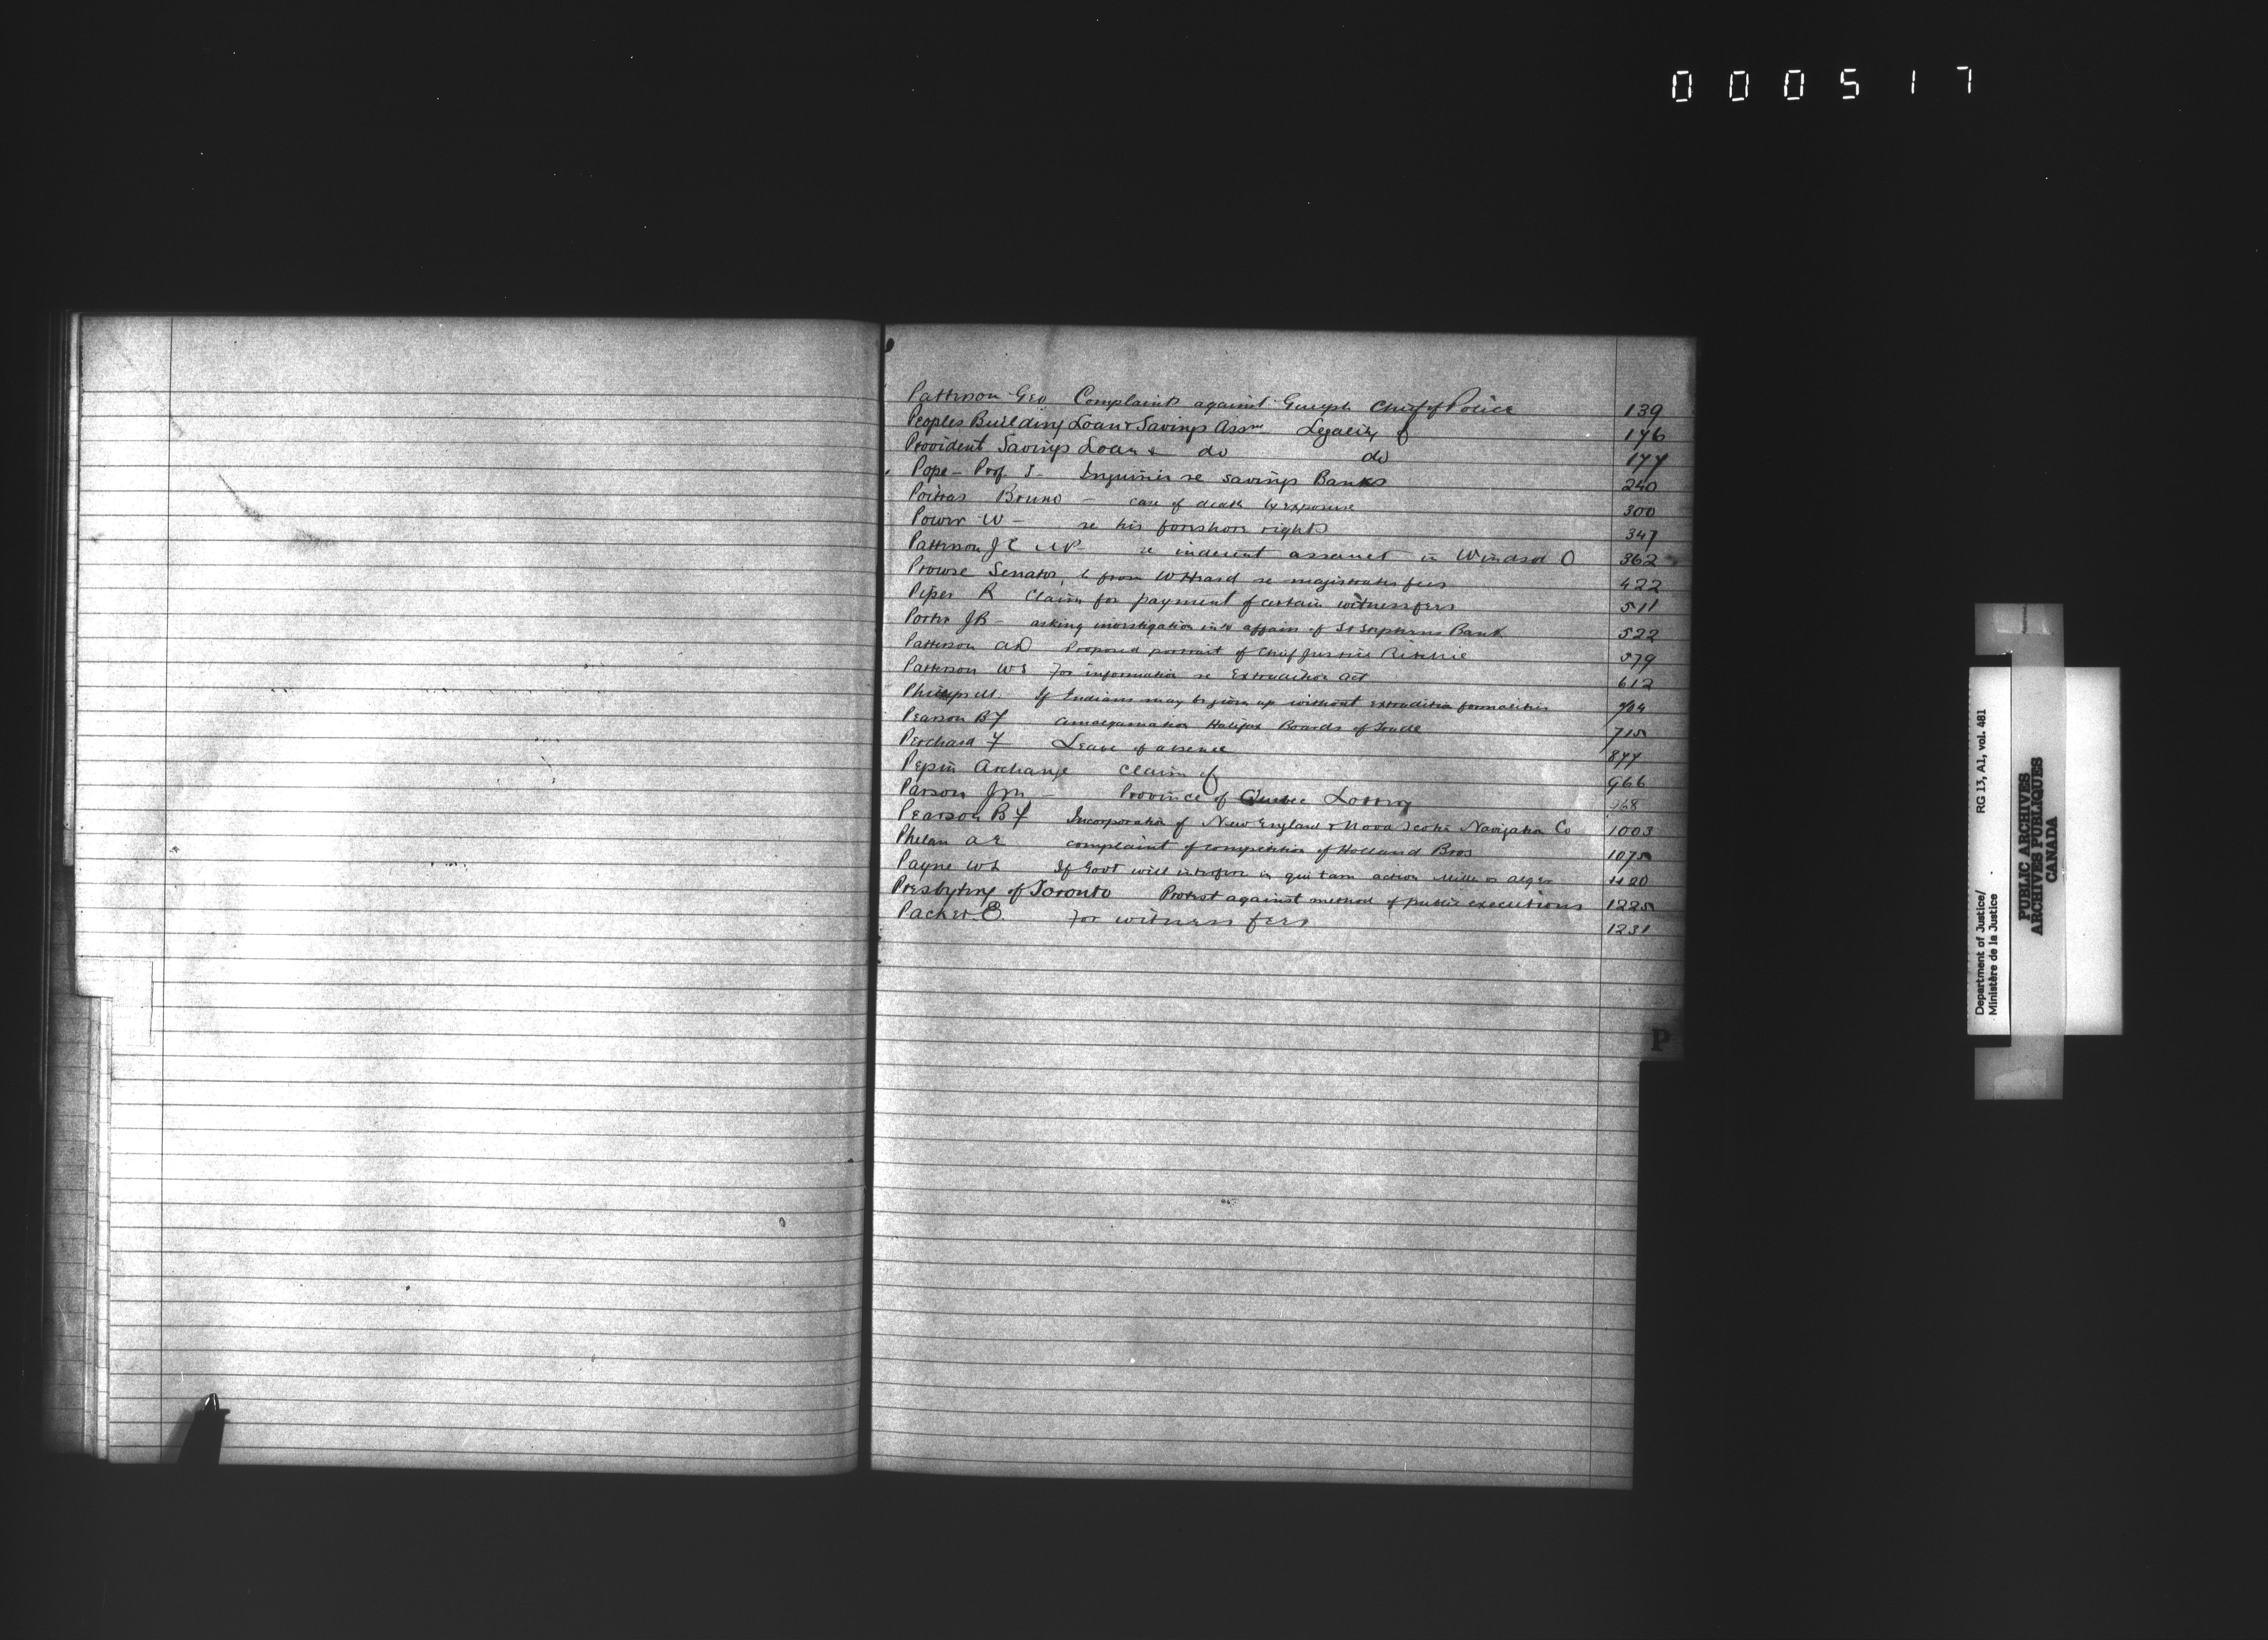 000517
Pattison Geo Complaint against Guelph Chief of Police 139
Peoples Building Loan & Savings Assn Legality of 176
Provident Savings Loan & do do 177
Pope - Prof J - Inquiries re savings Banks 240
Poitras Bruno - case of death by exposure 300
Power W - re his foreshore rights 347
Pattison J C MP - re indecent assault in Windsor O 362
Prowse Senator, from W Heard re magistrates fees 422
Piper R Claim for payment of certain witness fees 511
Porter J B - asking investigation into affairs of St Stephens Bank 522
Patterson A D Proposed portrait of Chief Justice Ritchie 579
Patterson W S For information re Extradition Act 612
Phillips M. If Indians may be given up without extradition formalities 704
Pearson B F Amalgamation Halifax Boards of Trade 715
Perchard F Leave of absence 877
Pepin Archange Claim of 966
Parson Jm - Province of Quebec Lottery 968
Pearson B F Incorporation of New England & Nova Scotia Navigation Co 1003
Phelan A E complaint of competition of Holland Bros 1075
Payne W L If Govt will interfere in qui tam action Miller vs Alger 1120
Presbytery of Toronto Protest against method of public executions 1225
Packer E. For witness fees 1231
P
Department of Justice/
Ministère de la Justice
RG 13, A1, vol. 481
PUBLIC ARCHIVES
ARCHIVES PUBLIQUES
CANADA